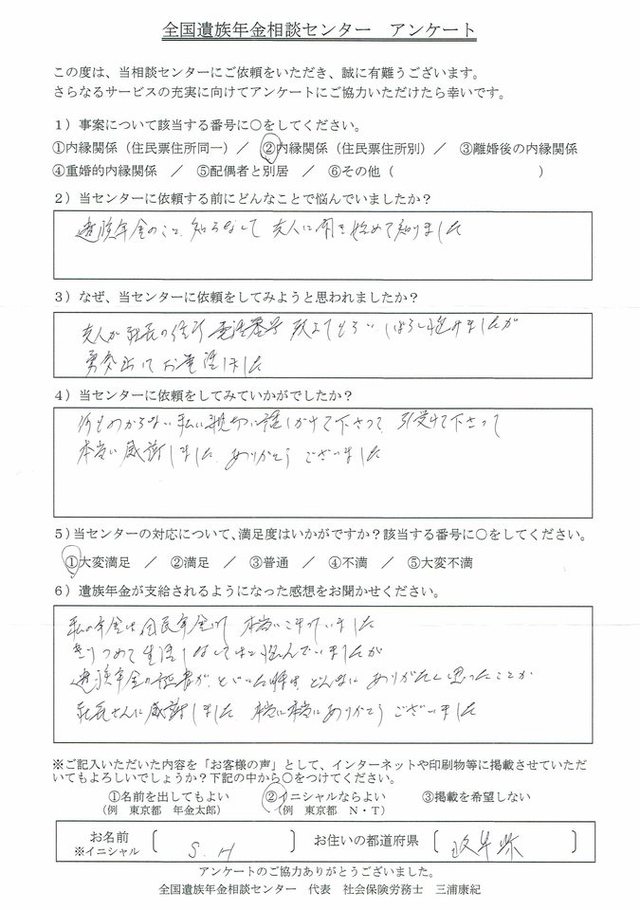 全国遺族年金相談センター　アンケート
この度は、当相談センターにご依頼をいただき、誠に有難うございます。
さらなるサービスの充実に向けてアンケートにご協力いただけたら幸いです。
1）事案について該当する番号に○をしてください。
①内縁関係（住民票住所同一）／　②内縁関係（住民票住所別）／　③離婚後の内縁関係
④重婚的内縁関係　／　⑤配偶者と別居　／　⑥その他（　　　　　　　　　）
2）当センターに依頼する前にどんなことで悩んでいましたか？
遺族年金のこと 知らなくて 友人に聞き始めて知りました
3）なぜ、当センターに依頼をしてみようと思われましたか？
友人が社長の住所 電話番号 教えてもらい しばらく悩みましたが
勇気出してお電話しました
4）当センターに依頼をしてみていかがでしたか？
何もわからない私に親切に話しかけて下さって 引受けて下さって
本当に感謝しました ありがとうございました
5）当センターの対応について、満足度はいかがですか？該当する番号に○をしてください。
①大変満足　／　②満足　／　③普通　／　④不満　／　⑤大変不満
6）遺族年金が支給されるようになった感想をお聞かせください。
私の年金は国民年金で 本当にこまっていました
きりつめて生活しなくてはと悩んでいましたが
遺族年金の証書が とどいた時は どんなに ありがたく思ったことか
社長さんに感謝しました 本当に本当にありがとうございました
※ご記入いただいた内容を「お客様の声」として、インターネットや印刷物等に掲載させていただ
いてもよろしいでしょうか？下記の中から○をつけてください。
①名前を出してもよい　②イニシャルならよい　③掲載を希望しない
（例　東京都　年金太郎）　（例　東京都　N・T）
お名前
※イニシャル　〔　S.H　〕　お住いの都道府県〔　岐阜県　〕
アンケートのご協力ありがとうございました。
全国遺族年金相談センター　代表　社会保険労務士　三浦康紀